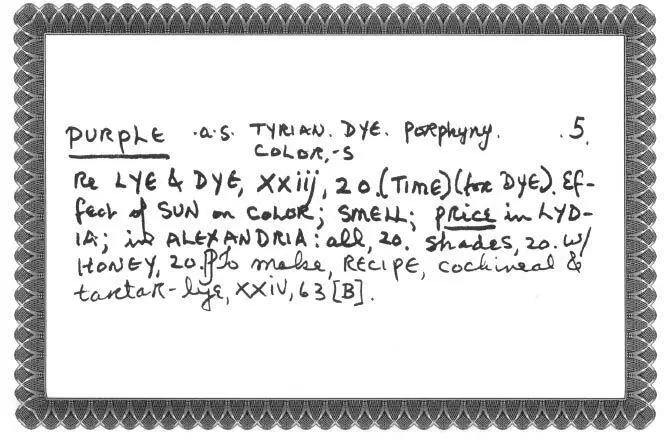 PURPLE .a.s. TYRIAN. DYE. Porphyry. .5.
COLOR,-S
Re LYE & DYE, XXiij, 20.(TIME)(for DYE). Ef-
fect of SUN on COLOR; SMELL; PRICE in LYD-
IA; in ALEXANDRIA: all, 20. Shades, 20. w/
HONEY, 20. To make, RECIPE, cochineal &
tartar-lye, XXIV, 63 [B].